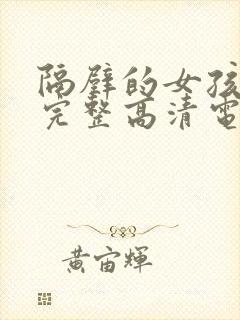 隔壁的女孩
完整高清電
黃宙輝